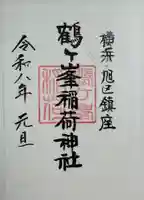 横浜・旭区鎮座
鶴ヶ峯稲荷神社
令和八年元旦